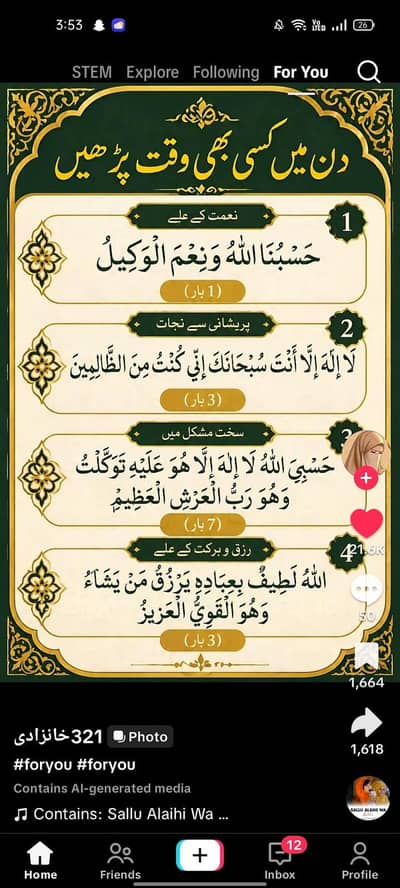 3:53
Vo LTED
26
STEM Explore Following For You
دن میں کسی بھی وقت پڑھیں
نعمت کے علے
1
حَسْبُنَا اللهُ وَنِعْمَ الْوَكِيلُ
(1 بار)
پریشانی سے نجات
2
لَا إِلَهَ إِلَّا أَنْتَ سُبْحَانَكَ إِنِّي كُنْتُ مِنَ الظَّالِمِينَ
(3 بار)
سخت مشکل میں
3
حَسْبِيَ اللهُ لَا إِلٰهَ إِلَّا هُوَ عَلَيْهِ تَوَكَّلْتُ
وَهُوَ رَبُّ الْعَرْشِ الْعَظِيمِ
(7 بار)
رزق و برکت کے علے
4
اللهُ لَطِيفٌ بِعِبَادِهِ يَرْزُقُ مَنْ يَشَاءُ
وَهُوَ الْقَوِيُّ الْعَزِيزُ
(3 بار)
21.6K
50
1,664
1,618
خانزادی321
Photo
#foryou #foryou
Contains AI-generated media
Contains: Sallu Alaihi Wa ...
SALLU ALAIHI WA
Home Friends Inbox Profile
12